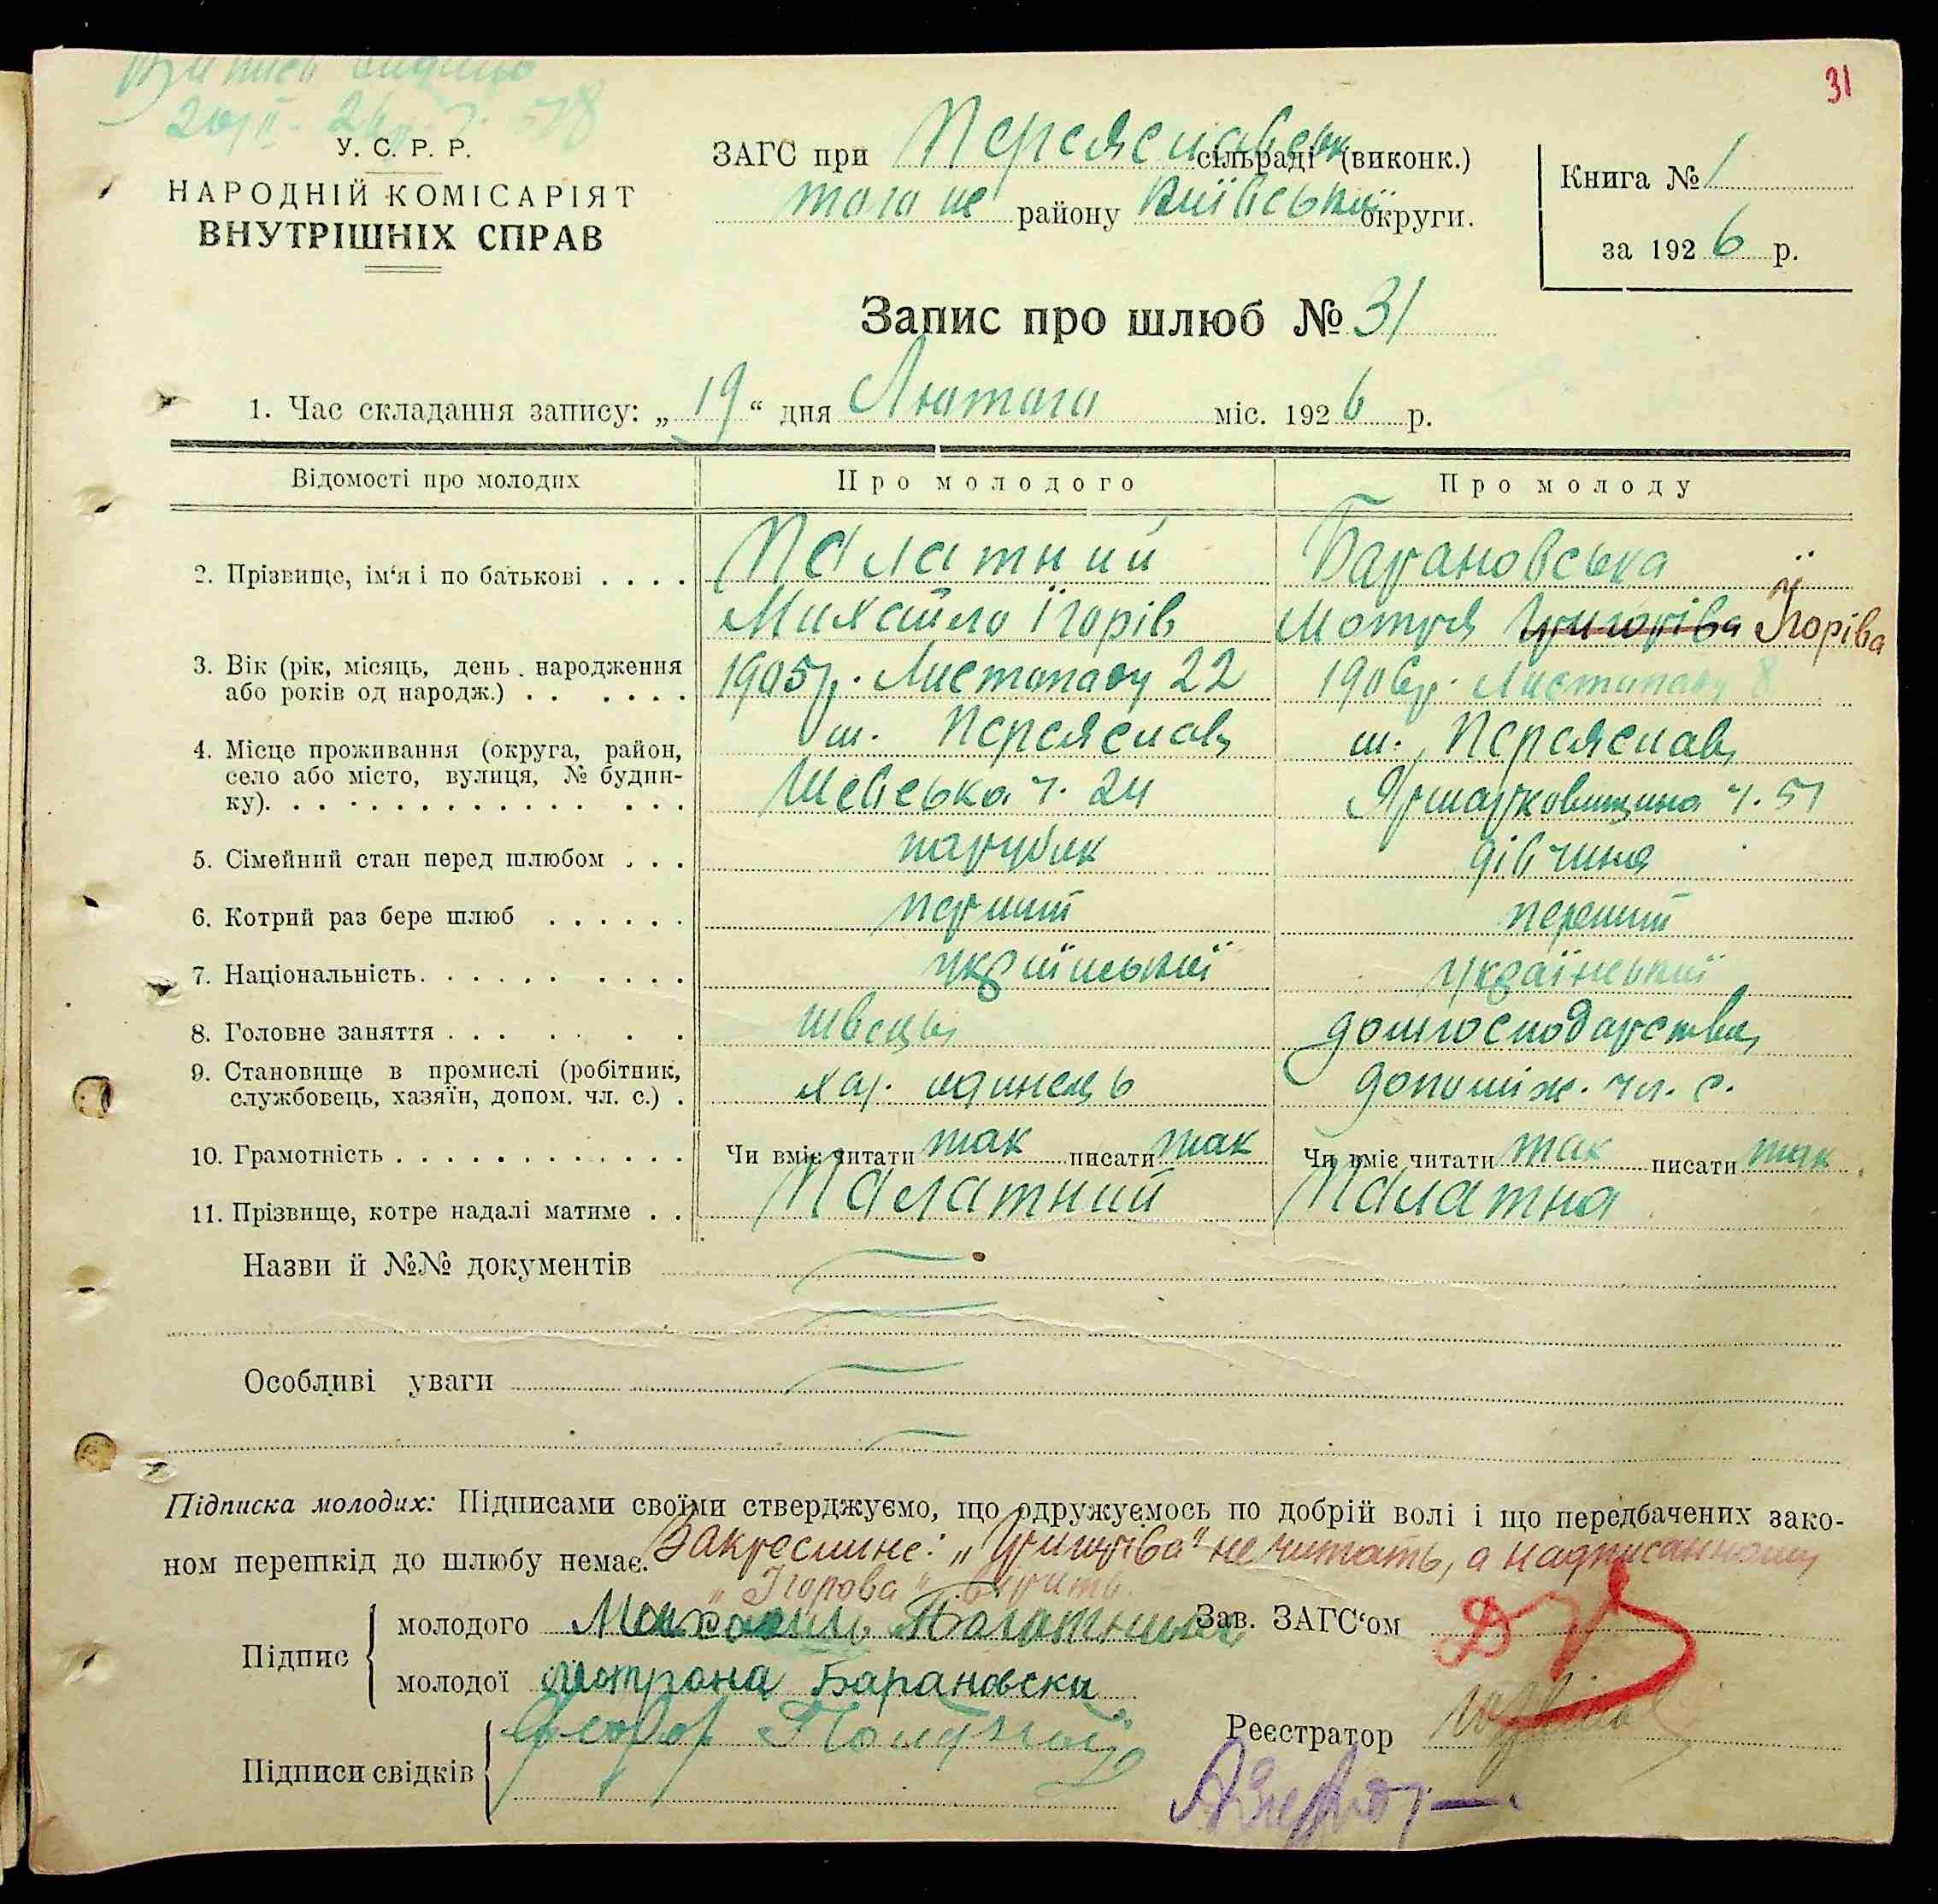 31
У. С. Р. Р.
НАРОДНІЙ КОМІСАРІЯТ
ВНУТРІШНІХ СПРАВ
ЗАГС при Переяславськ сільраді (виконк.)
того же району Київської округи.
Книга № 1
за 1926 р.
Запис про шлюб № 31
1. Час складання запису: „19“ дня Лютого міс. 1926 р.
Відомості про молодих Про молодого Про молоду
2. Прізвище, ім'я і по батькові . . . . Палатний Барановська
Михайло Ігорів Мотря Григоріва Ігоріва
3. Вік (рік, місяць, день народження 1905 р. Листопаду 22 1906 р. Листопаду 8
або років од народж.) . . . . . .
4. Місце проживання (округа, район, м. Переяслав, м. Переяслав,
село або місто, вулиця, № будин- Шевська ч. 24 Ярмарковищина ч. 51
ку). . . . . . . . . . . . . . . .
5. Сімейний стан перед шлюбом . . . парубок дівчина
6. Котрий раз бере шлюб . . . . . . перший перший
7. Національність. . . . . . . . . . української української
8. Головне заняття . . . . . . . швець домгосподарства
9. Становище в промислі (робітник, хаз. одинець допоміж. чл. с.
службовець, хазяїн, допом. чл. с.) .
10. Грамотність . . . . . . . . . . . . Чи вміє читати так писати так Чи вміє читати так писати так
11. Прізвище, котре надалі матиме . . Палатний Палатна
Назви й №№ документів
Особливі уваги
Підписка молодих: Підписами своїми стверджуємо, що одружуємось по добрій волі і що передбачених зако-
ном перешкід до шлюбу немає. Закреслине: „Григоріва“ не читать, а надписанному
„Ігорова“ вірить.
Підпис
молодого Палатный Зав. ЗАГС'ом
молодої Мотрона Барановска
Підписи свідків Федор
Реєстратор